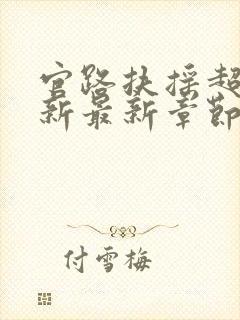 官路扶摇超
新最新章节
付雪梅